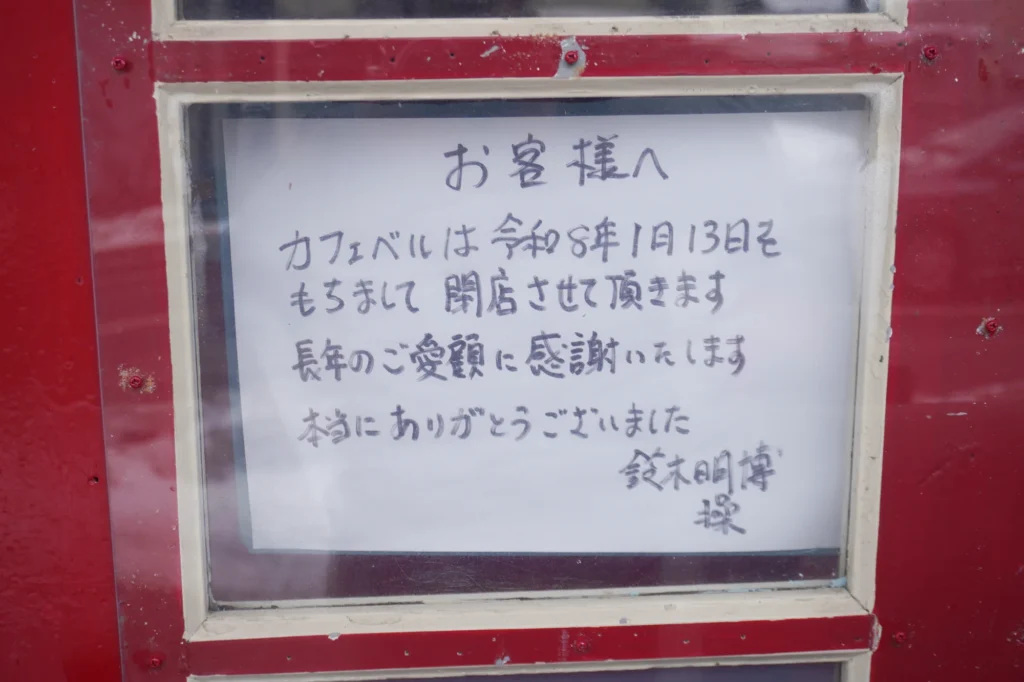 お客様へ
カフェベルは令和8年1月13日を
もちまして 閉店させて頂きます
長年のご愛顧に感謝いたします
本当にありがとうございました
鈴木明博
操